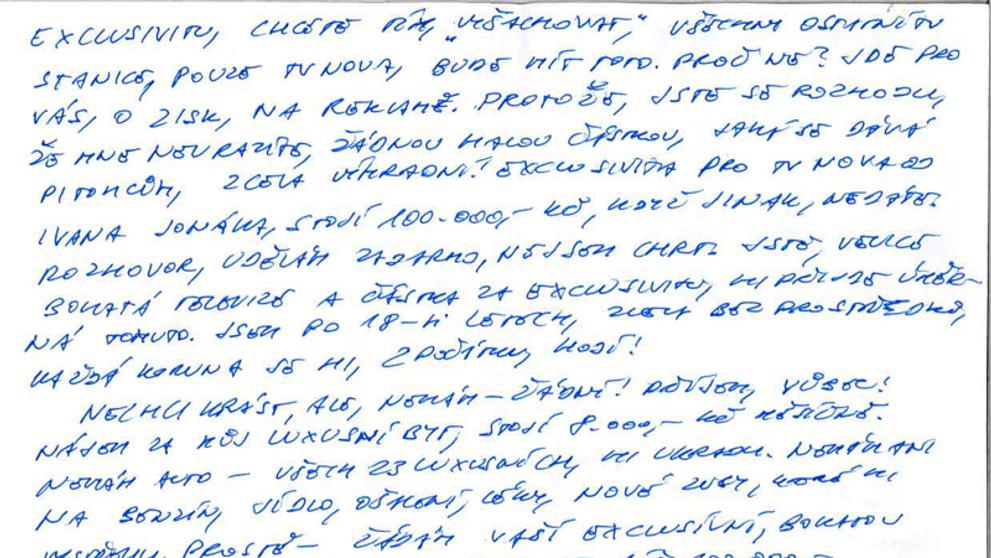 EXCLUSIVITU, CHCETE TÍM, "VYŠACHOVAT", VŠECHNY OSTATNÍ TV
STANICE, POUZE TV NOVA, BUDE MÍT TOTO. PROČ NE? JDE PRO
VÁS, O ZISK, NA REKLAMĚ. PROTOŽE, JSTE SE ROZHODLI,
ŽE MNE NEURAZÍTE, ŽÁDNOU MALOU ČÁSTKOU, JAKÁ SE DÁVÁ
PITOMCŮM, ZCELA VÝHRADNÍ! EXCLUSIVITA PRO TV NOVA OD
IVANA JONÁKA, STOJÍ 100.000,- KČ, KDYŽ JINAK, NEDÁTE.
ROZHOVOR, UDĚLÁM ZADARMO, NEJSEM CHRT. JSTE, VELICE
BOHATÁ TELEVIZE A ČÁSTKA ZA EXCLUSIVITU, MI PŘIJDE ÚMĚR-
NÁ TOMUTO. JSEM PO 18-TI LETECH, ZCELA BEZ PROSTŘEDKŮ,
KAŽDÁ KORUNA SE MI, ZPOČÁTKU, HODÍ!
NECHCI KRÁST, ALE, NEMÁM - ŽÁDNÝ! PŘÍJEM, VŮBEC!
NÁJEM ZA MŮJ LUXUSNÍ BYT, STOJÍ 8.000,- KČ MĚSÍČNĚ.
NEMÁM AUTO - VŠECH 23 LUXUSNÍCH, MI UKRADLI. NEMÁM ANI
NA BENZÍN, JÍDLO, OŠACENÍ, LÉKY, NOVÉ ZUBY, KTERÉ MI
PROSTĚ - ŽÁDÁM VAŠÍ EXCLUSIVNÍ, BOHATOU